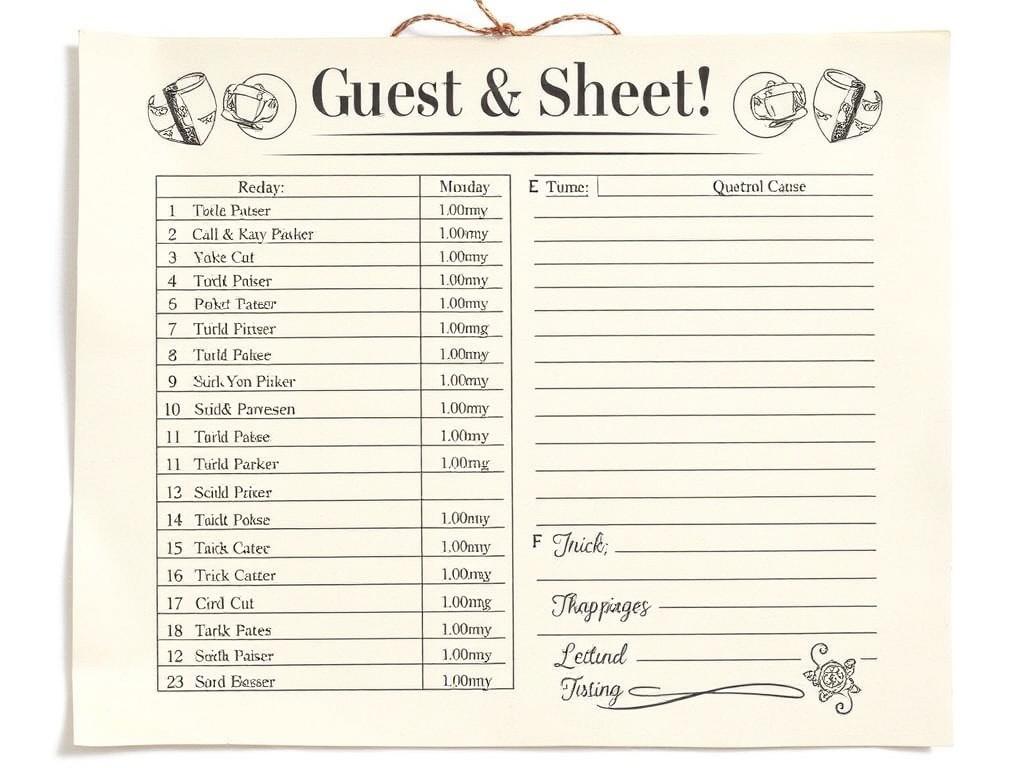 Guest & Sheet!
Reday: Monday
1 Totle Patser 1.00rmy
2 Call & Kay Pasker 1.00my
3 Yake Cut 1.00my
4 Tordt Paiser 1.00my
5 Poket Pateer 1.00my
7 Turld Pirser 1.00mg
8 Turld Pakee 1.00my
9 Suck Yon Pisker 1.00my
10 Srid& Parvesen 1.00my
11 Turld Patee 1.00my
11 Turld Parker 1.00mg
13 Sciuld Priker
14 Taidt Pokse 1.00my
15 Taick Catee 1.00my
16 Trick Catter 1.00my
17 Cird Cut 1.00mg
18 Tarkk Pates 1.00my
12 Paiser 1.00my
23 Sord 1.00my
E Tume: Quetrol Cause
F Jnick;
Thappiages
Lectund
Tisting